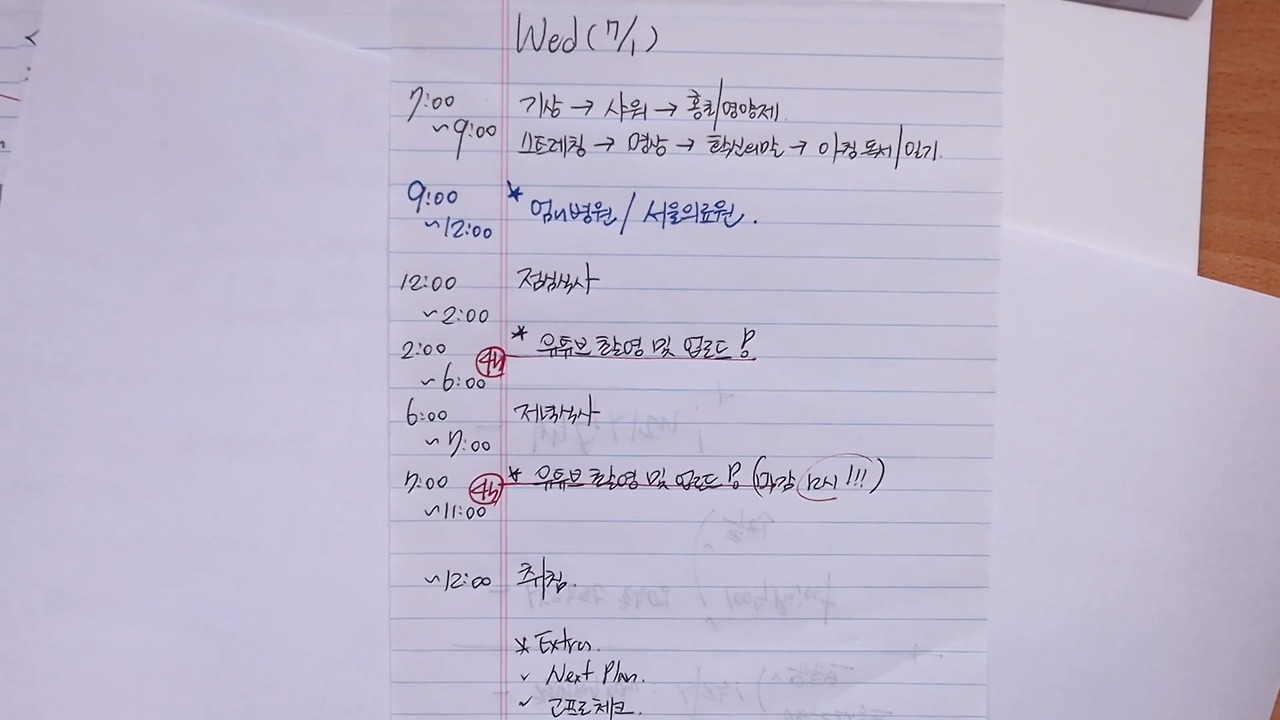 Wed (7/1)
7:00 기상 → 샤워 → 홍희/영양제.
~9:00 스트레칭 → 명상 → 확신의말 → 아침독서/일기.
9:00 * 엄마병원 / 서울의료원.
~12:00
12:00 점심식사
~2:00
2:00 4h * 유튜브 촬영 및 업로드!
~6:00
6:00 저녁식사
~7:00
7:00 4h * 유튜브 촬영 및 업로드! (마감 12시!!!)
~11:00
~12:00 취침.
* Extras.
✓ Next Plan.
✓ 고프로체크.